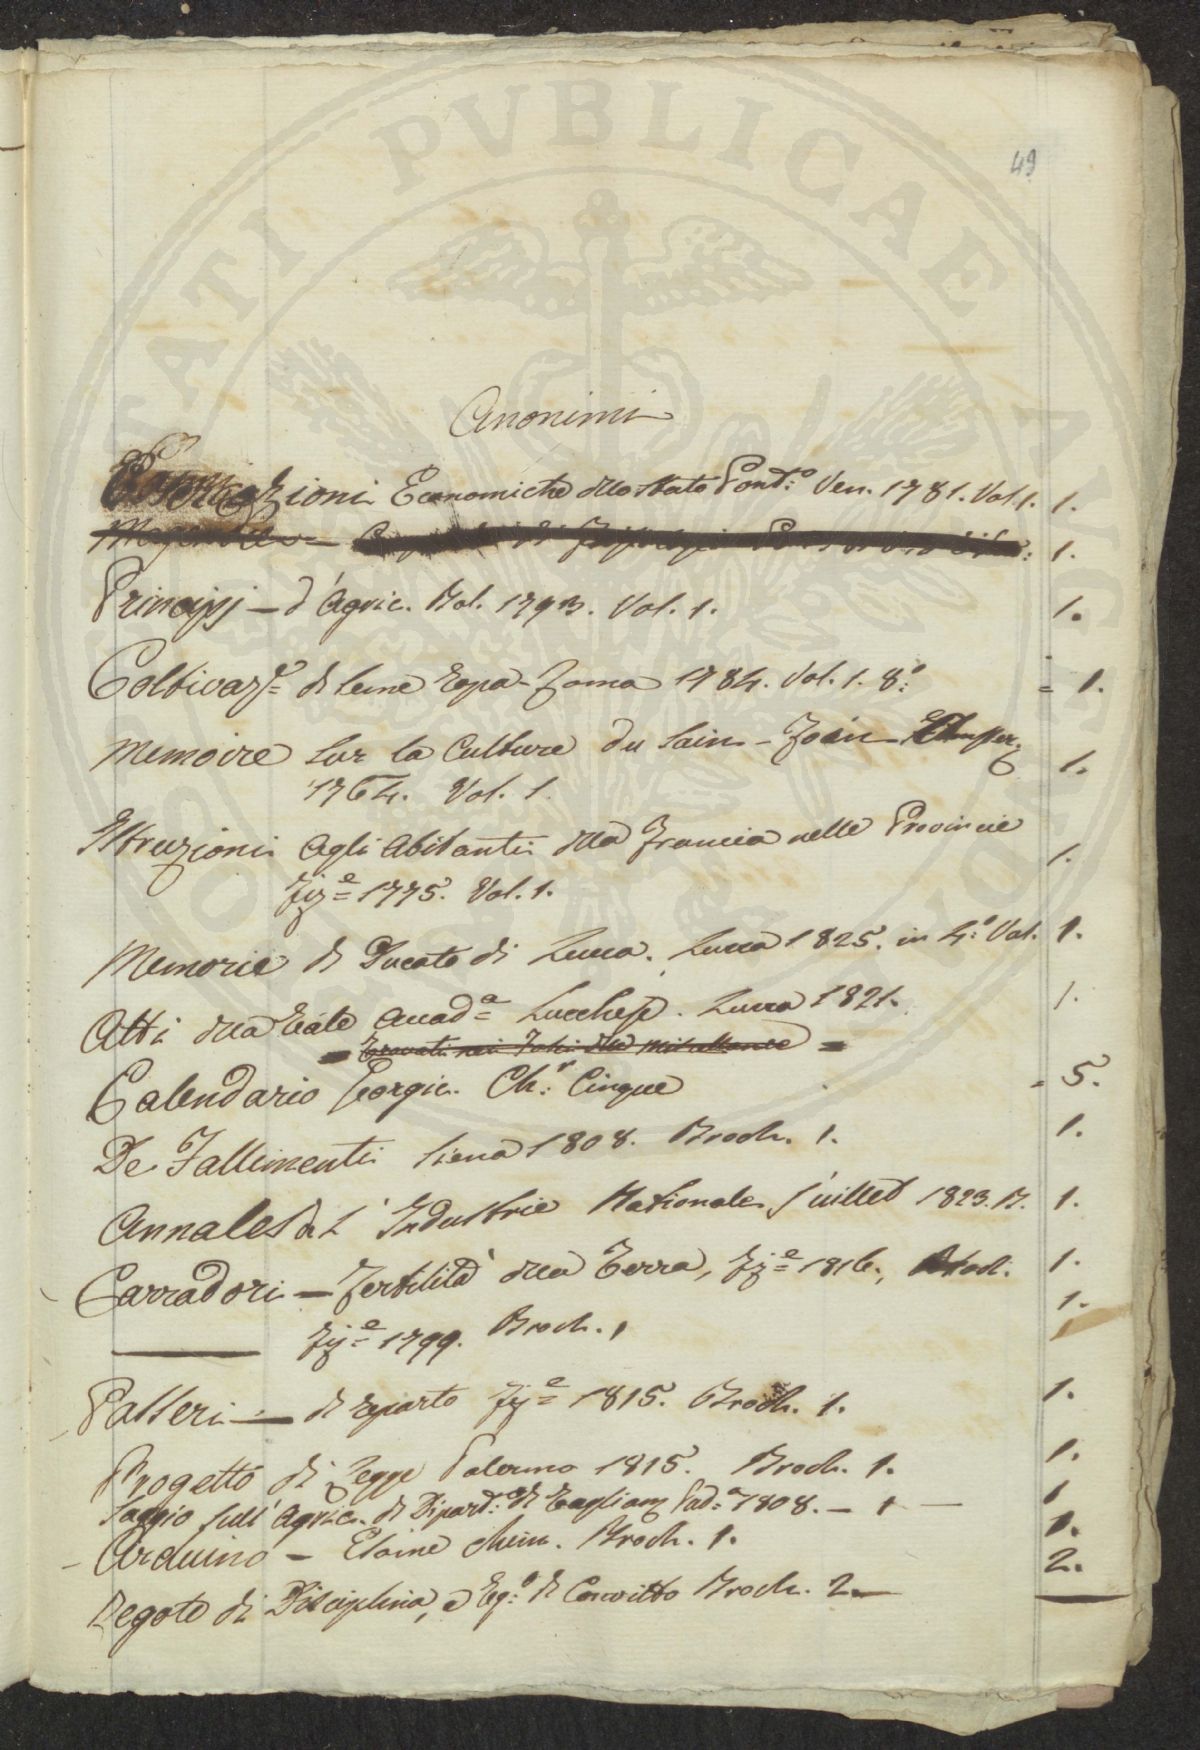 49
Anonimi
Osservazioni Economiche dello stato Pont:º Ven. 1781. Vol. 1. 1.
1.
Principj – d'Agric. Bol. 1793. Vol. 1. 1.
Coltivaz:e di Roma 1784. Vol. 1. 8:º = 1.
Memoire sur la Culture du Sain-Foin 1.
1764. Vol. 1.
Istruzioni agli abitanti della Francia nelle Provincie 1.
Fiz:e 1775. Vol. 1.
Memorie di Ducato di Lucca. Lucca 1825. in 4:º Vol. 1.
Atti della Reale Accad:a Lucchese. Lucca 1821. 1.
= Trovati nei della miscellanee =
Calendario Georgic. Ch:i Cinque = 5.
De Fallimenti Siena 1808. Broch. 1. 1.
Annales de L'Industrie Nationale Juillet 1823. B. 1.
Carradori – Fertilità della Terra, Fiz:e 1816., Broch. 1.
—— Fiz:e 1799. Broch. 1 1.
Passeri — di Fiz:e 1815. Broch. 1. 1.
Progetto di Legge Palermo 1815. Broch. 1. 1.
Saggio sull' Agric. di Dipart:o di Pad:a 1808. – 1 – 1
Arduino – Chim. Broch. 1. 1.
Regole di Disciplina, e di Convitto Broch. 2 — 2.